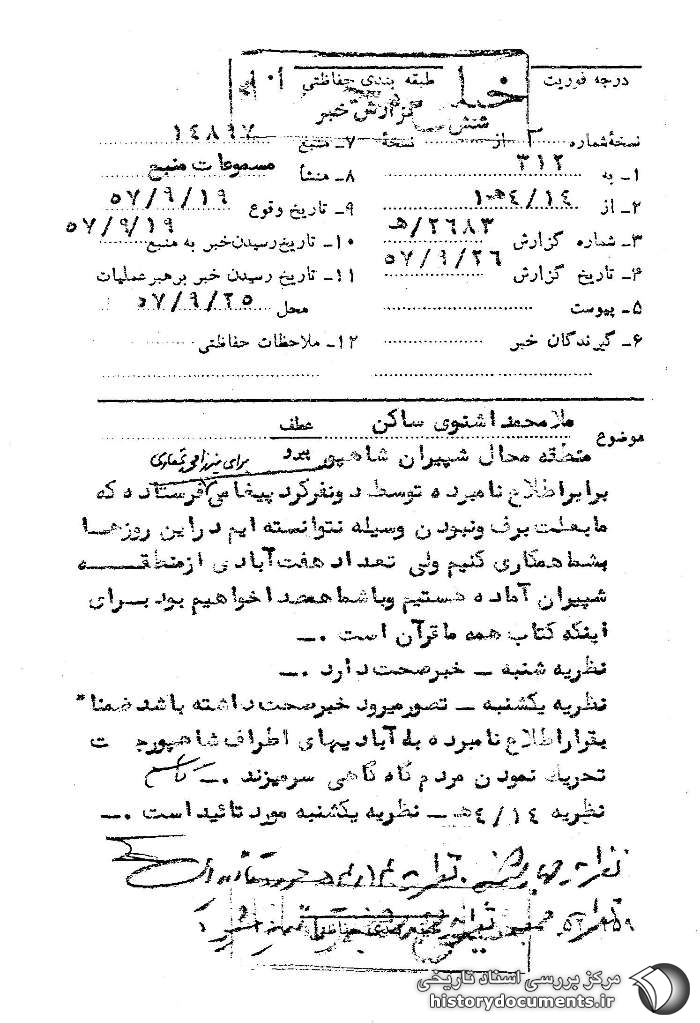 درجه فوریت
طبقه بندی حفاظتی
گزارش خبر
نسخهٔ شماره از نسخهٔ
۷ـ منبع ۱۴۸۹۷
۱ـ به ۳۱۲
۸ـ منشأ مسموعات منبع
۲ـ از ۴/۱۴ه۱۰
۹ـ تاریخ وقوع ۵۷/۹/۱۹
۳ـ شماره گزارش ۲۶۸۳/ه
۱۰ـ تاریخ رسیدن خبر به منبع ۵۷/۹/۱۹
۴ـ تاریخ گزارش ۵۷/۹/۲۶
۱۱ـ تاریخ رسیدن خبر برهبر عملیات
۵ـ پیوست
محل ۵۷/۹/۲۵
۶ـ گیرندگان خبر
۱۲ـ ملاحظات حفاظتی
موضوع ملامحمد اشنوی ساکن عطف
منطقه محال شپیران شاهپور پیرو
برابر اطلاع نامبرده توسط دونفرکرد پیغام فرستاده که
ما بعلت برف ونبودن وسیله نتوانسته ایم دراین روزها
بشما همکاری کنیم ولی تعداد هفت آبادی ازمنطقه
شپیران آماده هستیم وباشما همصدا خواهیم بود برای
اینکه کتاب همه ما قرآن است ۰ـ
نظریه شنبه ـ خبرصحت دارد ۰ـ
نظریه یکشنبه ـ تصورمیرود خبرصحت داشته باشد ضمنا"
بقرار اطلاع نامبرده به آبادیهای اطراف شاهپورجهت
تحریک نمودن مردم گاه گاهی سرمیزند ۰ـ
نظریه ۴/۱۴ه ـ نظریه یکشنبه مورد تائید است ۰ـ
طبقه بندی حفاظتی
مرکز بررسی اسناد تاریخی
historydocuments.ir